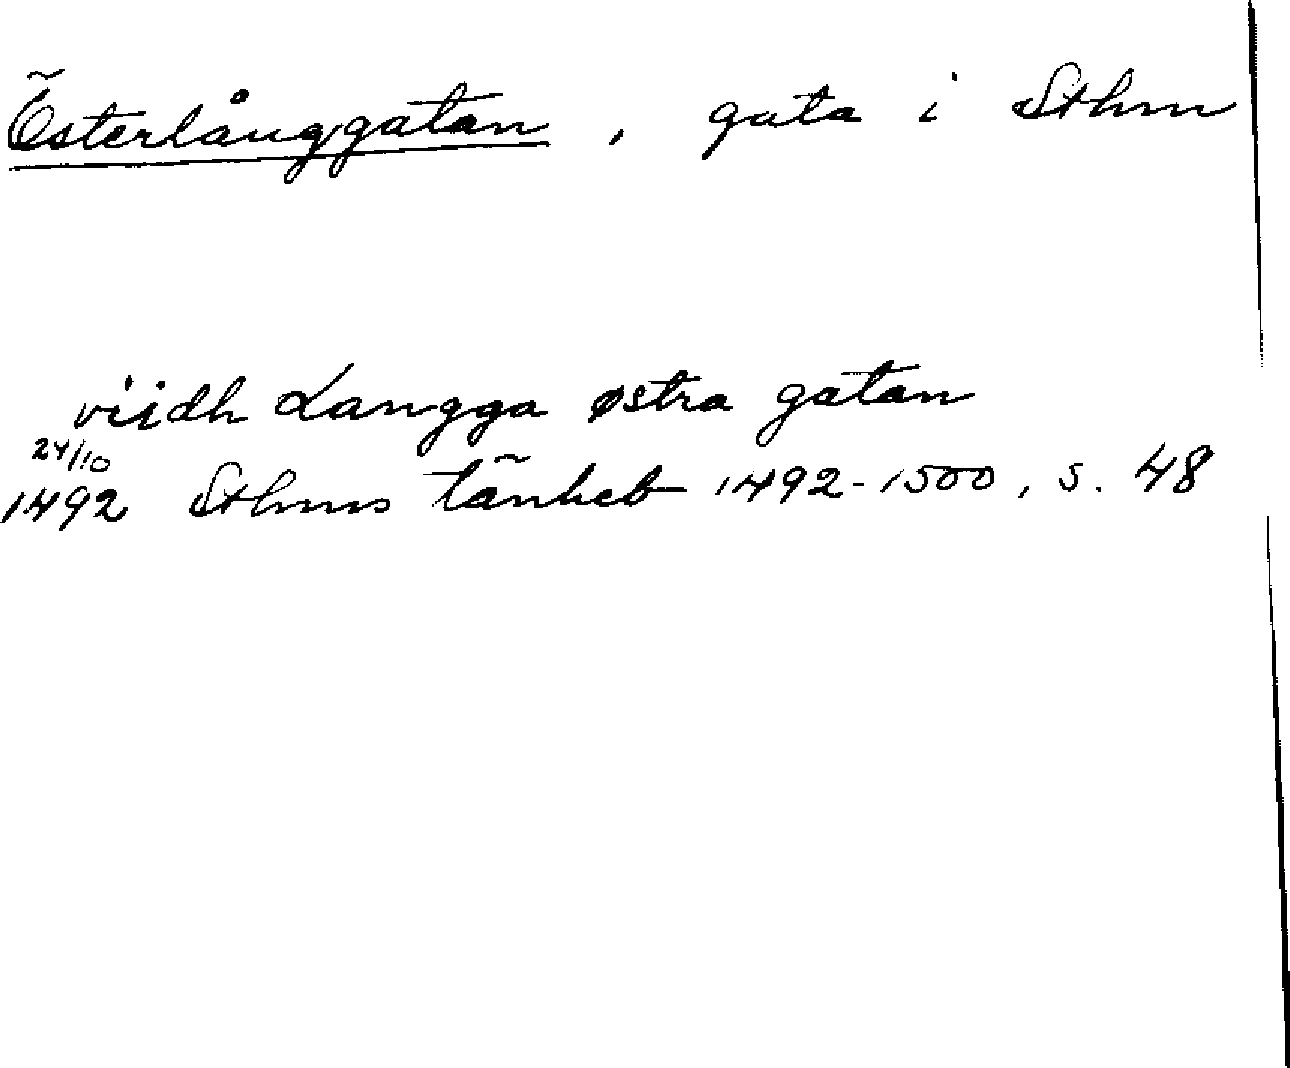 Österlånggatan, gata i Sthm
viidh Langga østra gatan
24/10
1492 Sthms tänkeb 1492-1500, s. 48